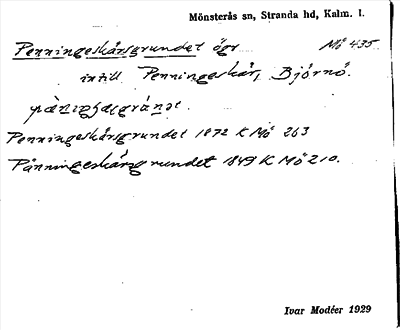 Mönsterås sn, Stranda hd, Kalm. l.
Penningeskärsgrundet ögr Mö 435.
intill Penningeskär, Björnö.
Penningeskärsgrundet 1872 K Mö 263
Pänningeskärsgrundet 1849 K Mö 210.
Ivar Modéer 1929